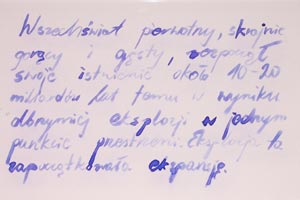 Wszechświat pierwotny, skrajnie
gorący i gęsty, rozpoczął
swoje istnienie około 10-20
miliardów lat temu w wyniku
olbrzymiej eksplozji w jednym
punkcie przestrzeni. Eksplozja ta
zapoczątkowała ekspansję.